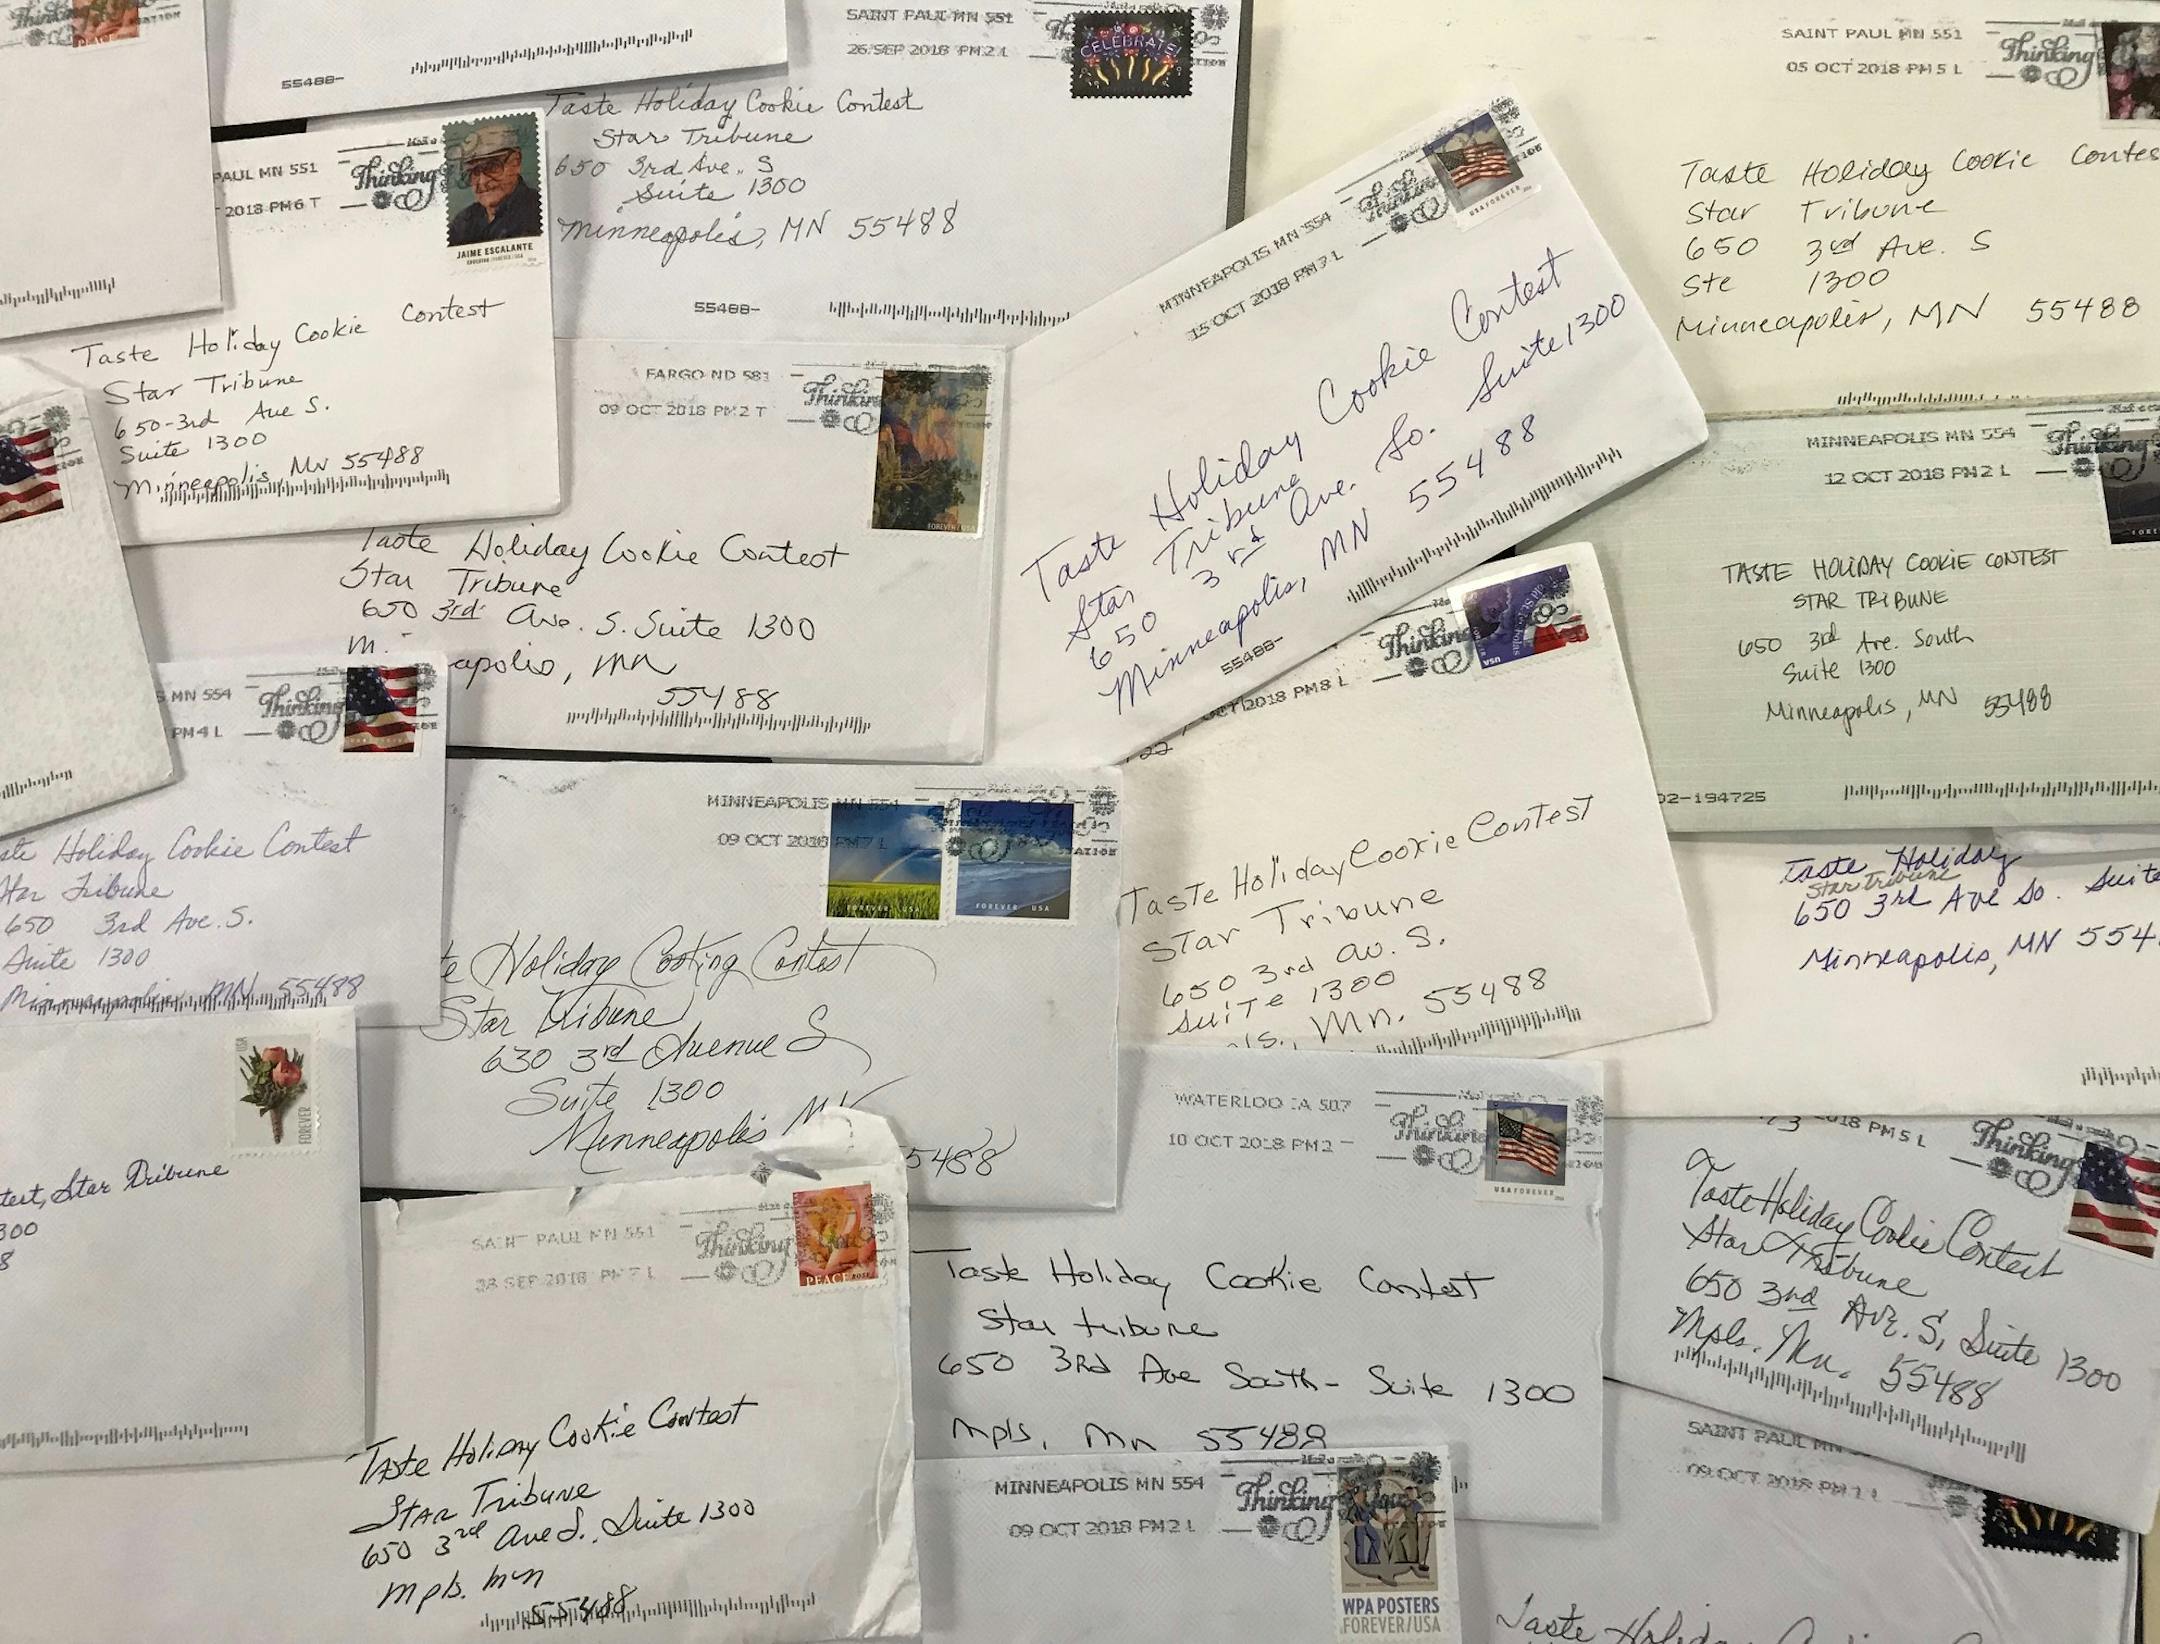 Thinking
PEACE
STATION
55488-
SAINT PAUL MN 551
26 SEP 2018 PM 2 L
CELEBRATE!
Taste Holiday Cookie Contest
Star Tribune
650 3rd Ave. S
Suite 1300
Minneapolis, MN 55488
55488-
SAINT PAUL MN 551
05 OCT 2018 PM 5 L
Thinking
Taste Holiday Cookie Contes
Star Tribune
650 3rd Ave. S
Ste 1300
Minneapolis, MN 55488
PAUL MN 551
2018 PM 6 T
Thinking
JAIME ESCALANTE
Taste Holiday Cookie Contest
Star Tribune
650-3rd Ave S.
Suite 1300
Minneapolis, MN 55488
MINNEAPOLIS MN 554
15 OCT 2018 PM 7 L
Thinking
USA FOREVER
Taste Holiday Cookie Contest
Star Tribune
650 3rd Ave. So. Suite 1300
Minneapolis, MN 55488
55488-
FARGO ND 581
09 OCT 2018 PM 2 T
Thinking
FOREVER/USA
Taste Holiday Cookie Contest
Star Tribune
650 3rd Ave. S. Suite 1300
M
apolis, MN
55488
MINNEAPOLIS MN 554
12 OCT 2018 PM 2 L
Thinking
TASTE HOLIDAY COOKIE CONTEST
STAR TRIBUNE
650 3rd Ave. South
Suite 1300
Minneapolis, MN 55488
02-194725
MN 554
PM 4 L
Thinking
ste Holiday Cookie Contest
Star Tribune
650 3rd Ave. S.
Suite 1300
Minneapolis, MN 55488
OCT 2018 PM 8 L
Thinking
USA
22
Taste Holiday Cookie Contest
Star Tribune
650 3rd Av. S.
Suite 1300
ls., Mn. 55488
MINNEAPOLIS MN 554
09 OCT 2018 PM 7 L
STATION
FOREVER USA
FOREVER USA
te Holiday Cooking Contest
Star Tribune
630 3rd Avenue S
Suite 1300
Minneapolis MN
5488
Taste Holiday
Star Tribune
650 3rd Ave So. Suite
Minneapolis, MN 554
USA
FOREVER
test, Star Tribune
300
8
SAINT PAUL MN 551
28 SEP 2018 PM 7 L
Thinking
PEACE ROSE
Taste Holiday Cookie Contest
Star Tribune
650 3rd Ave S., Suite 1300
Mpls. Mn
55488
WATERLOO IA 507
10 OCT 2018 PM 2
Thinking
USA FOREVER
Taste Holiday Cookie Contest
Star tribune
650 3Rd Ave South - Suite 1300
Mpls, Mn 55488
2018 PM 5 L
Thinking
73
Taste Holiday Cookie Contest
Star Tribune
650 3rd Ave. S, Suite 1300
Mpls. Mn. 55488
MINNEAPOLIS MN 554
09 OCT 2018 PM 2 L
Thinking
WPA POSTERS
FOREVER/USA
SAINT PAUL MN
09 OCT 2018 PM 1 L
Taste Holiday